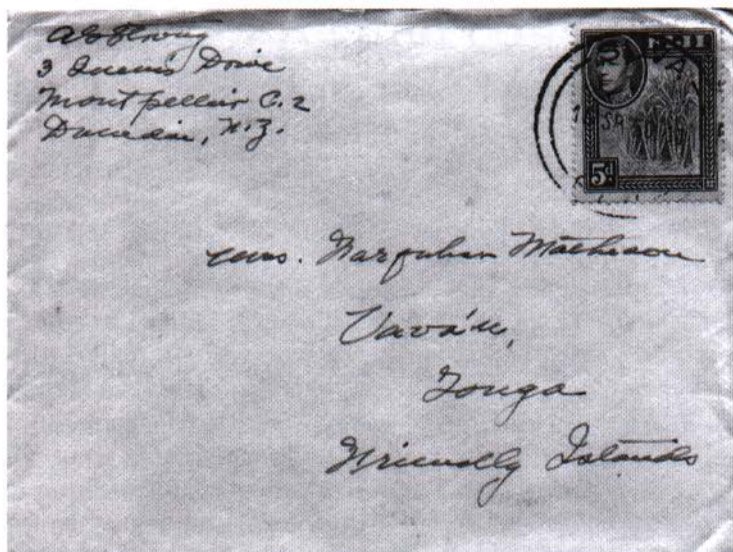 3 Queens Drive
Montpellier C.2
Dunedin, N.Z.
FIJI
SUVA
5d
Mrs. Farquhar Matheson
Vavá'u,
Tonga
Friendly Islands